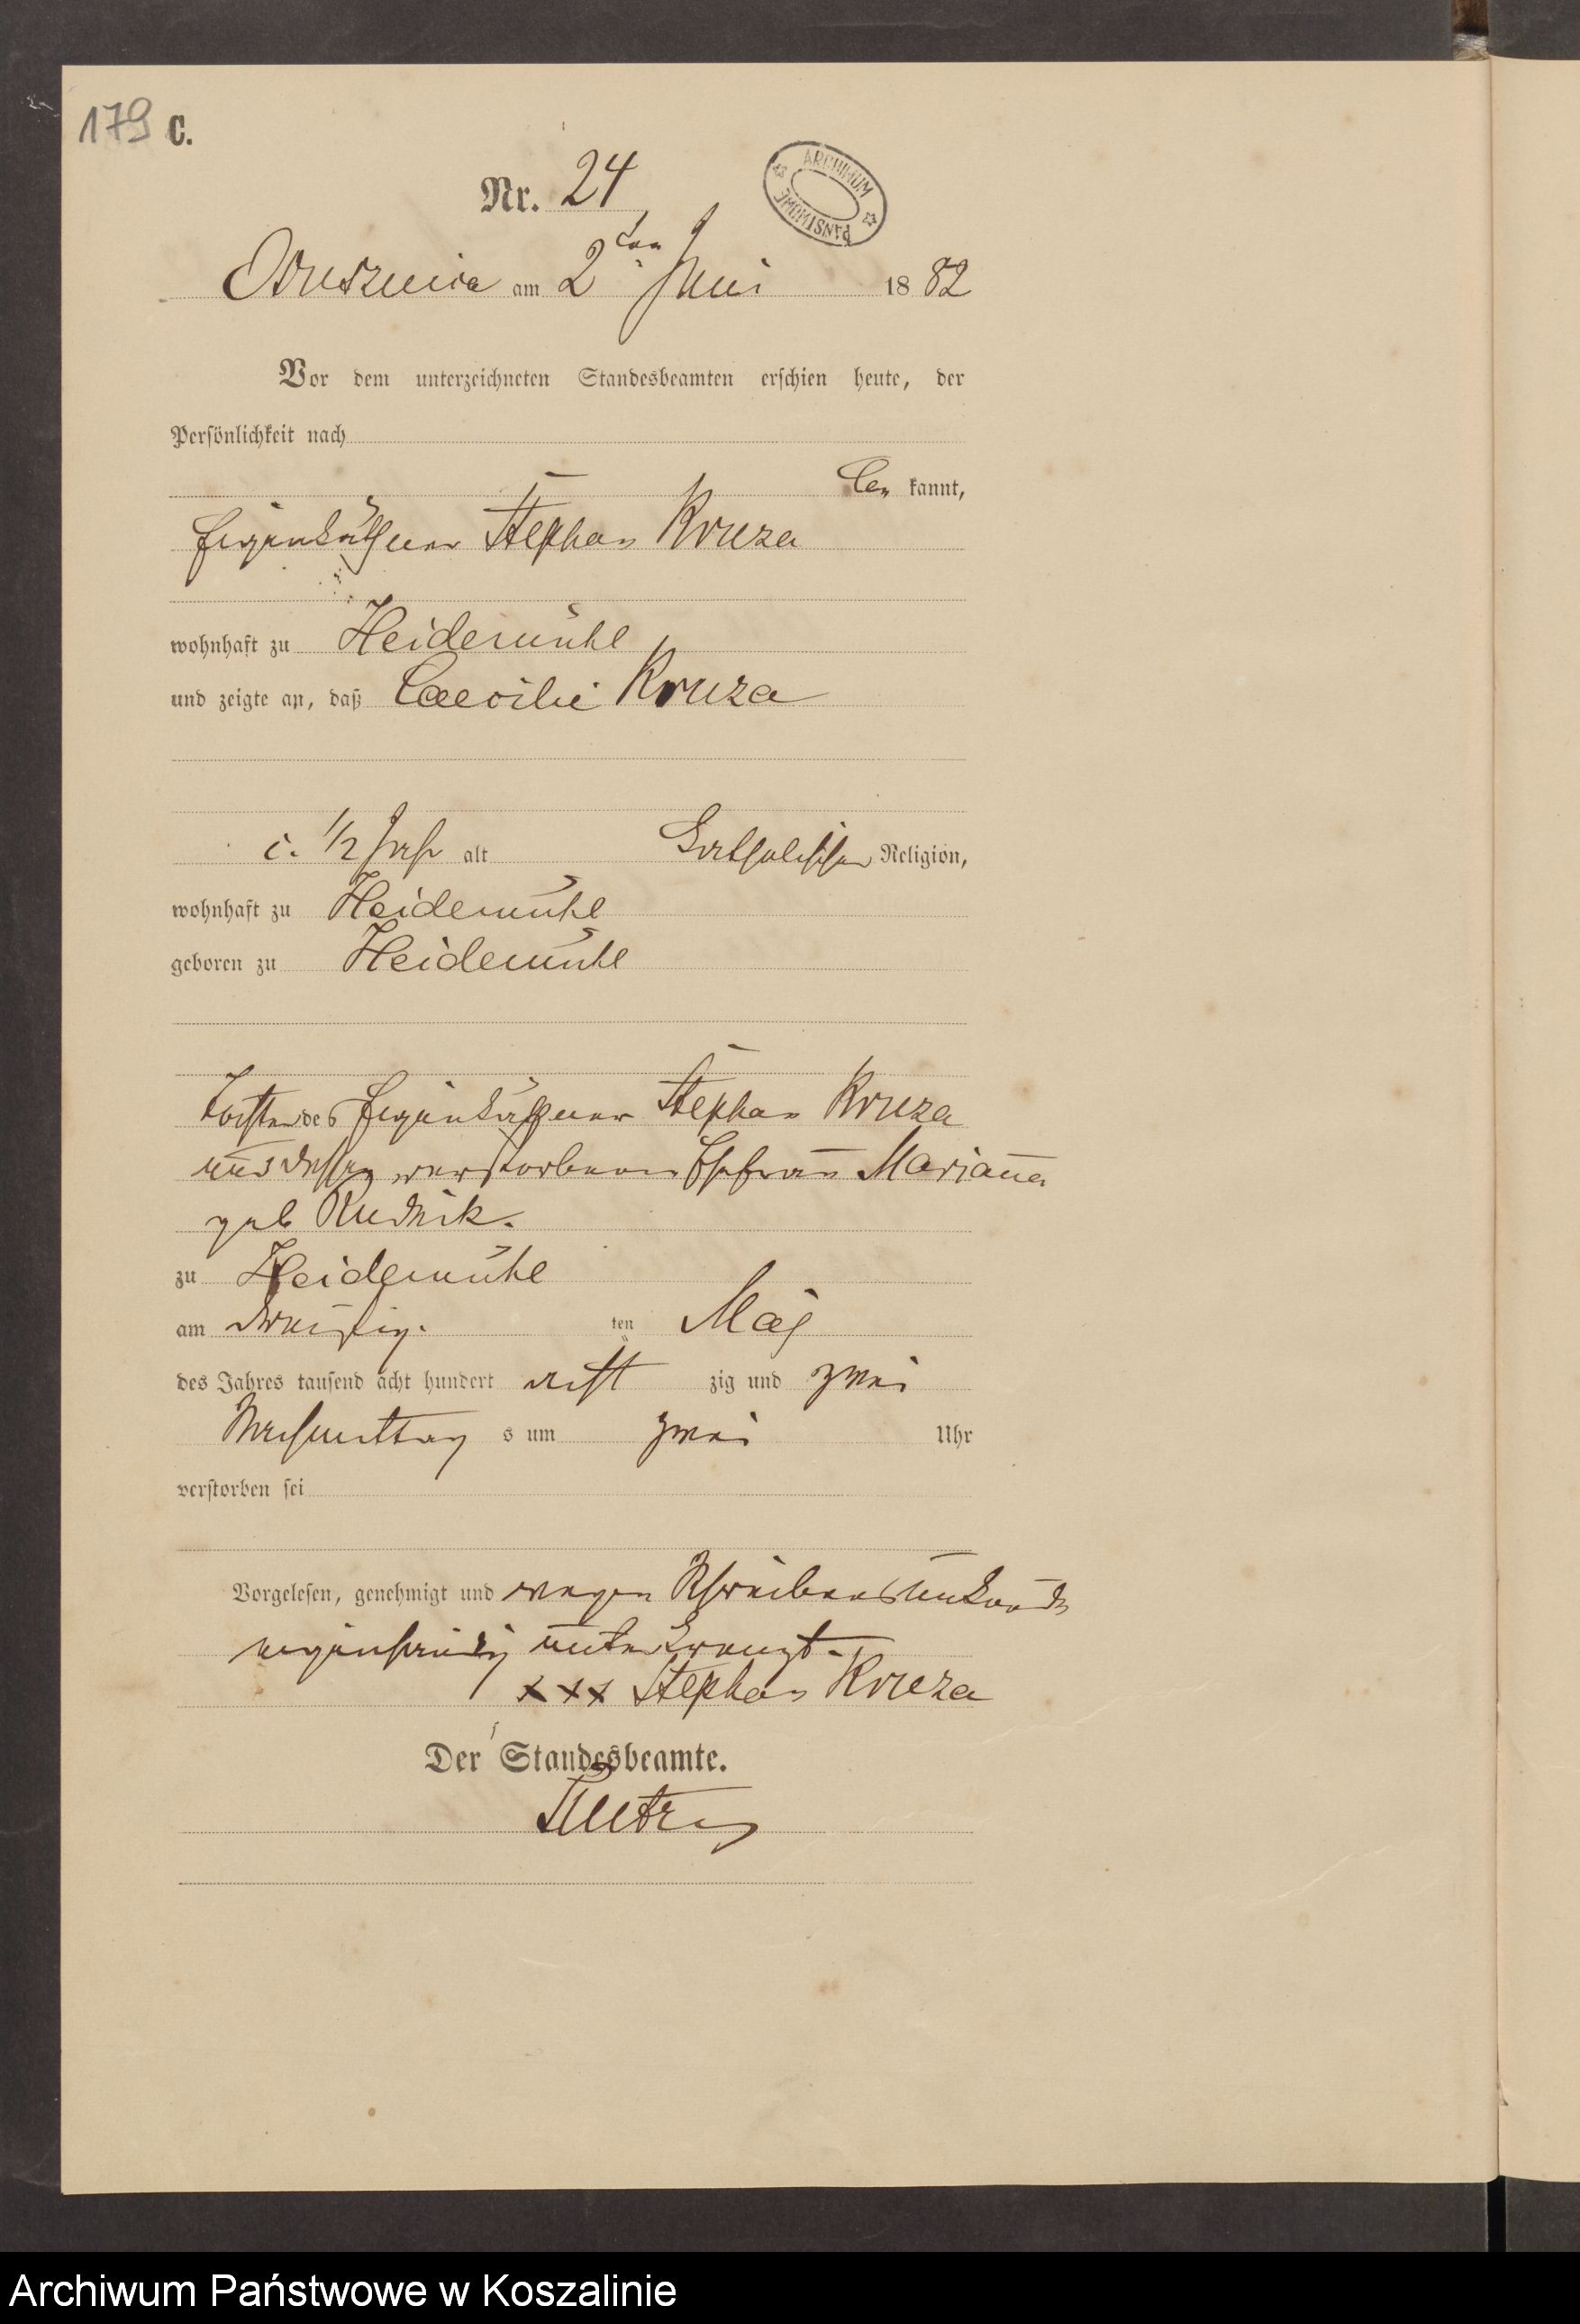 179 C.
Nr. 24
ARCHIWUM PAŃSTWOWE
Ostusznica am 2ten Juni 1882
Vor dem unterzeichneten Standesbeamten erschien heute, der
Persönlichkeit nach
be kannt,
Eigenkäthner Stephan Kruza
wohnhaft zu Heidemühl
und zeigte an, daß Caecilie Kruza
c. 1/2 Jahr alt katholischer Religion,
wohnhaft zu Heidemühl
geboren zu Heidemühl
Tochter des Eigenkäthner Stephan Kruza
und dessen verstorbenen Ehefrau Marianna
geb Rudnik.
zu Heidemühl
am dreißig ten Mai
des Jahres tausend acht hundert acht zig und zwei
Nachmittag s um zwei Uhr
verstorben sei
Vorgelesen, genehmigt und wegen Schreibensunkunde
eigenhändig unterkreuzt.
xxx Stephan Kruza
Der Standesbeamte.
Archiwum Państwowe w Koszalinie